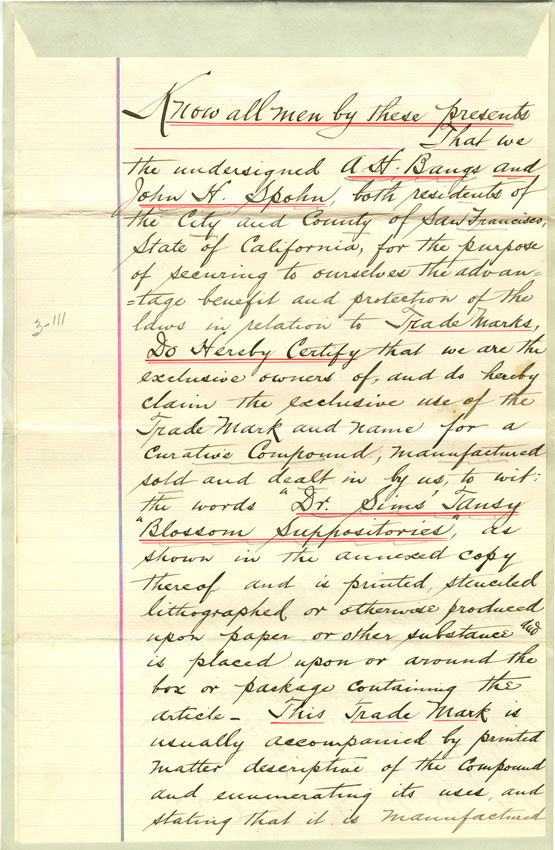 Know all men by these presents
That we
the undersigned A. H. Bangs and
John H. Spohn, both residents of
the City and County of San Francisco,
State of California, for the purpose
of securing to ourselves the advan=
=tage benefit and protection of the
laws in relation to Trade Marks,
Do Hereby Certify that we are the
exclusive owners of, and do hereby
claim the exclusive use of the
Trade Mark and name for a
Curative Compound, manufactured
sold and dealt in by us, to wit:
the words "Dr. Sims' Tansy
"Blossom Suppositories", as
shown in the annexed copy
thereof and is printed, stenciled
lithographed or otherwise produced
upon paper or other substance and
is placed upon or around the
box or package containing the
article - This Trade Mark is
usually accompanied by printed
matter descriptive of the Compound
and enumerating its uses, and
stating that it is manufactured
3-111